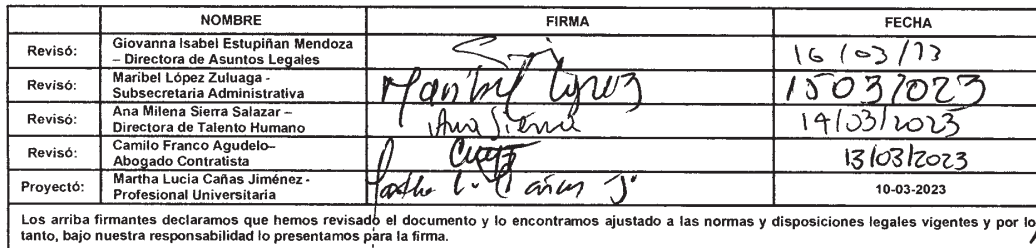 NOMBRE FIRMA FECHA
Revisó: Giovanna Isabel Estupiñan Mendoza
– Directora de Asuntos Legales 16/03/23
Revisó: Maribel López Zuluaga -
Subsecretaria Administrativa Maribel López 15 03/2023
Revisó: Ana Milena Sierra Salazar –
Directora de Talento Humano Ana Sierra 14/03/2023
Revisó: Camilo Franco Agudelo–
Abogado Contratista 13/03/2023
Proyectó: Martha Lucia Cañas Jiménez -
Profesional Universitaria Martha L. Cañas J. 10-03-2023
Los arriba firmantes declaramos que hemos revisado el documento y lo encontramos ajustado a las normas y disposiciones legales vigentes y por lo
tanto, bajo nuestra responsabilidad lo presentamos para la firma.